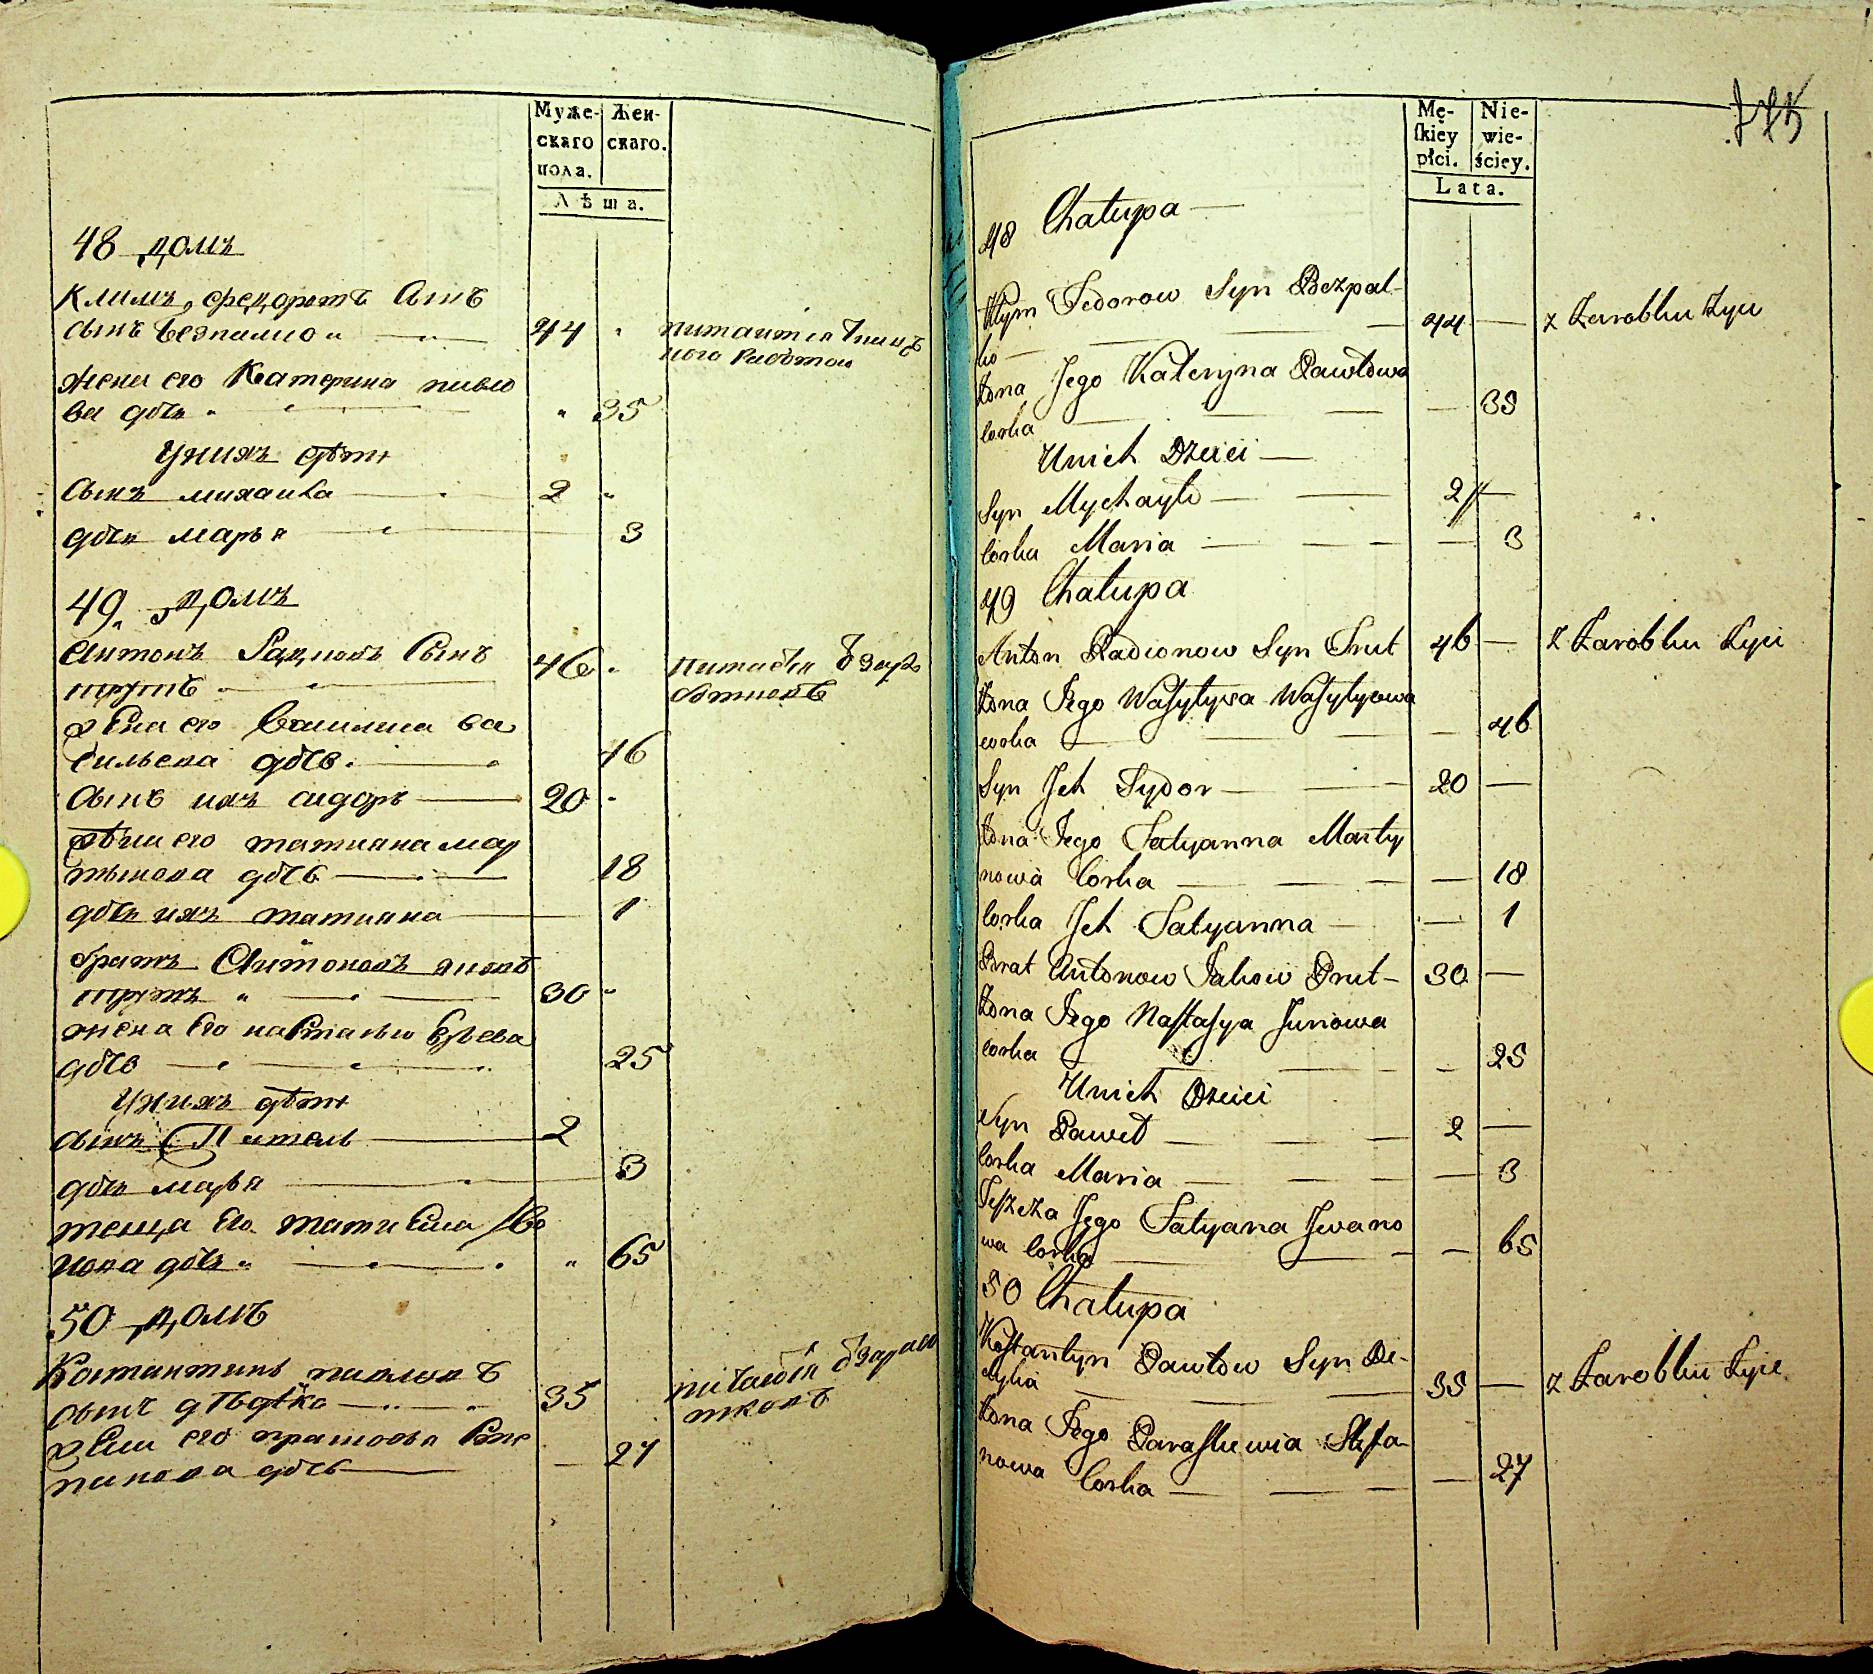 Муже-
скаго
пола.
Жен-
скаго.
Лѣта.
48 домъ
Климъ, федоровъ Сынъ
сынъ безпално
44
питаитса
работои
жена его Катерина павло
ва дочь
35
Унихъ дѣти
Сынъ михаила
2
дочь марья
3
49 домъ
Антонъ Радионовъ Сынъ
трутъ
46
питаеться
жена его василиса ва
сильева дочь
46
Сынъ ихъ сидоръ
20
жена его татиана мар
тынова дочь
18
дочь ихъ татиана
1
братъ Антоновъ яковъ
трутъ
30
жена Его настасья
дочь
25
Унихъ дѣти
сынъ
2
дочь марья
3
теща Его татиана Ива
нова дочь
65
50 домъ
Костантинъ павловъ
сынъ дѣдько
35
питаеться
жена его прасковья Сте
панова дочь
27
775
Mę-
skiey
płci.
Nie-
wie-
ściey.
Lata.
48 Chałupa
Kłym Fedorow Syn Bezpal-
ko
44 — z Zarobku Żyie
Żona Jego Kateryna Pawłowa
Corka
— 35
Unich Dzieci
Syn Mychayło
2 —
Corka Maria
— 3
49 Chałupa
Anton Radionow Syn Trut
46 — z Zarobku Żyie
Żona Jego Wasylysa Wasylyowa
corka
— 46
Syn Jch Sydor
20 —
Żona Jego Tatyanna Marty
nowa Corka
— 18
Corka Jch Tatyanna
— 1
Brat Antonow Jakow Trut
30 —
Żona Jego Nastasya Juriowa
corka
— 25
Unich Dzieci
Syn Paweł
2 —
Corka Maria
— 3
Teszcza Jego Tatyana Jwano
wa Corka
— 65
50 Chałupa
Kostantyn Pawłow Syn De-
dyka
35 — z Zarobku Żyie
Żona Jego Paraskewia Stefa
nowa Corka
— 27